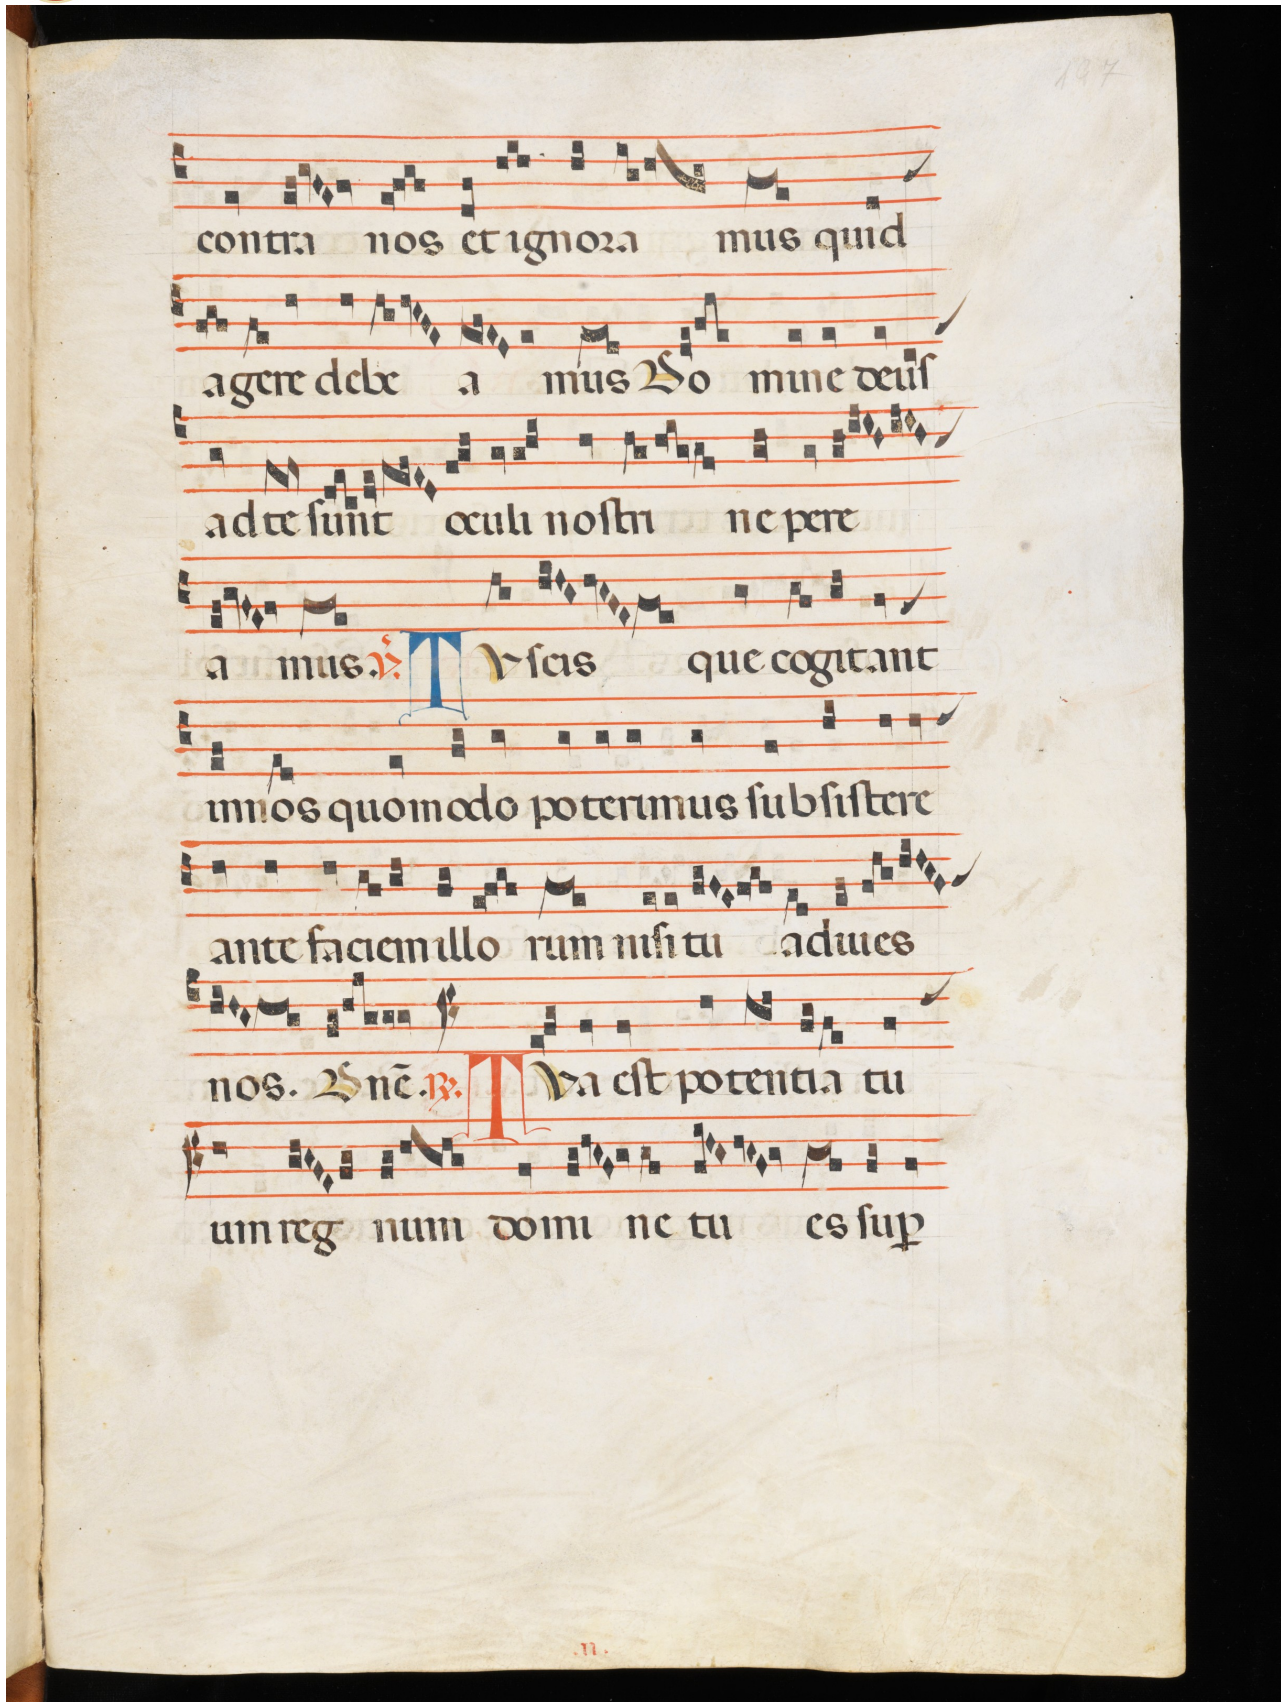 197
contra nos et ignora mus quid
agere debe a mus Do mine deus
ad te sunt oculi nostri ne pere
a mus. ℣ Tu scis que cogitant
in nos quomodo poterimus subsistere
ante faciem illo rum nisi tu adiues
nos. Dnē. ℟. Tua est potentia tu
um reg num domi ne tu es suꝑ
.n.